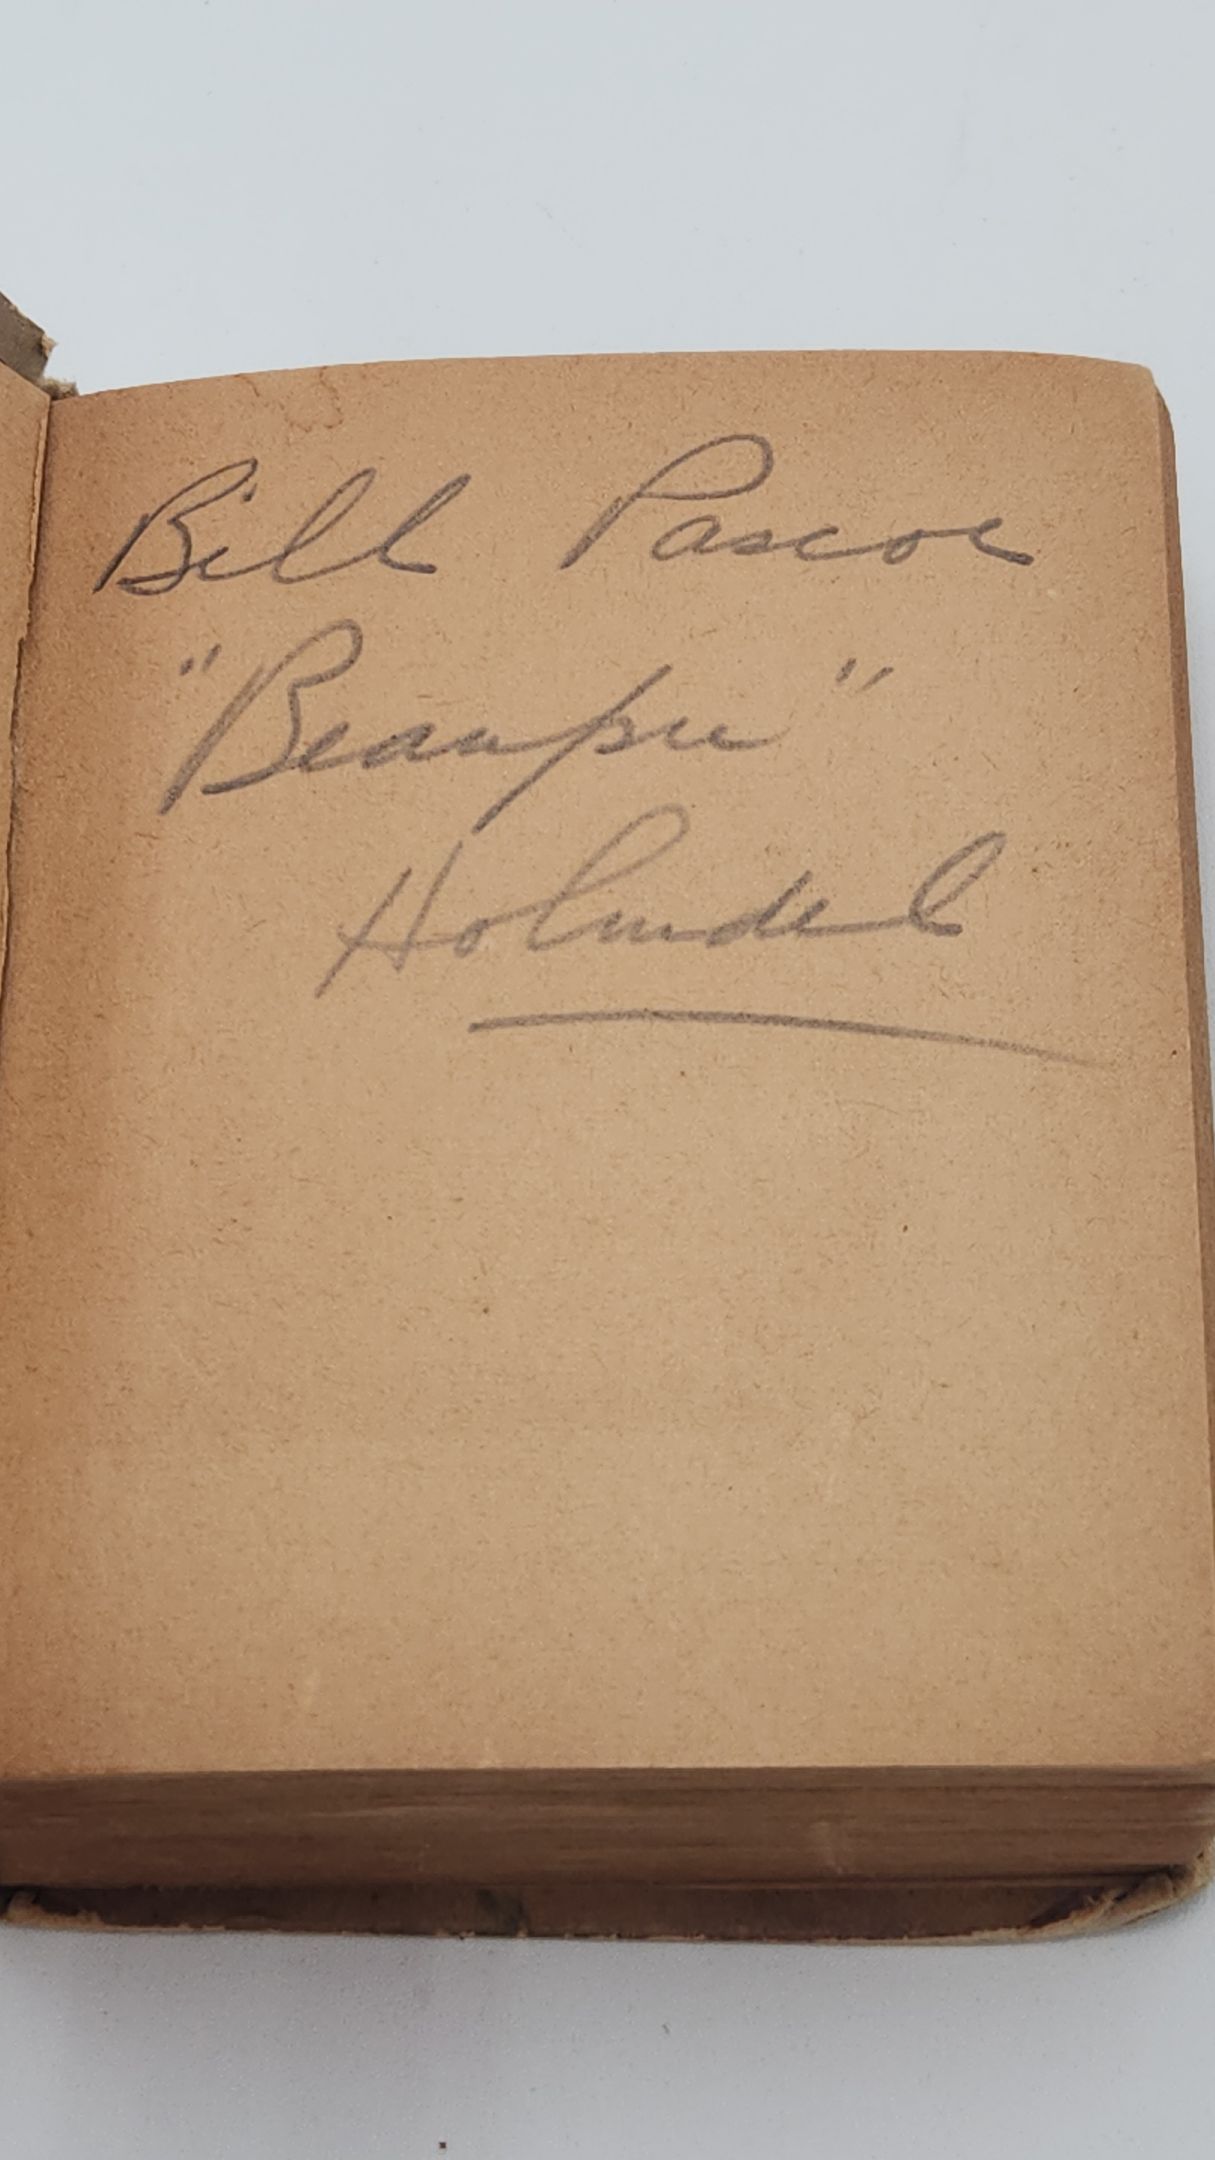 Bill Pascoe
"Beaupre"
Holmdel